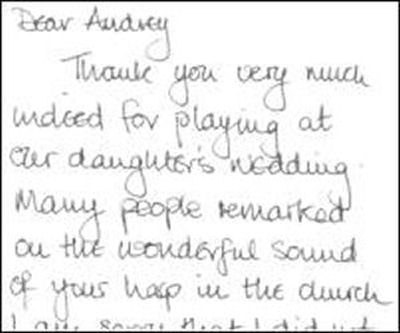 Dear Audrey
Thank you very much
indeed for playing at
our daughter's wedding.
Many people remarked
on the wonderful sound
of your harp in the church
I am sorry that I did not